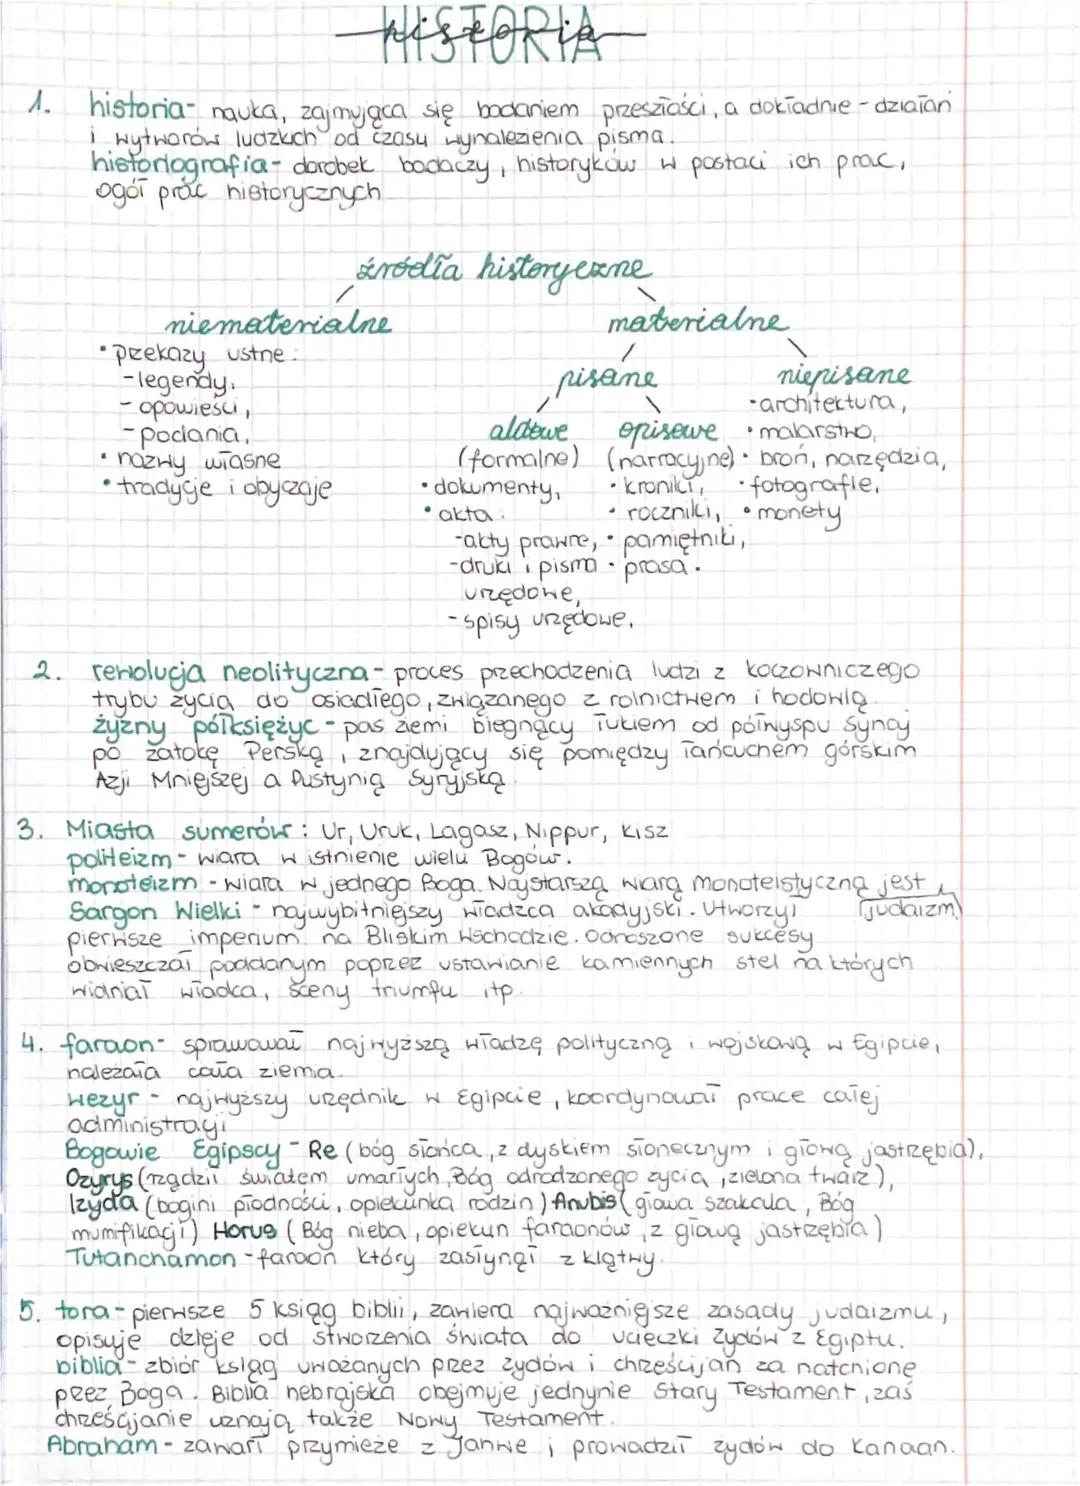 HISTORIA
historia
1. historia - nauka, zajmująca się badaniem przeszłości, a dokładnie - działań
i wytworów ludzkich od czasu wynalezienia pisma.
historiografia - dorobek badaczy, historyków w postaci ich prac,
ogół prac historycznych
źródła historyczne
niematerialne materialne
• przekazy ustne:
- legendy,
- opowieści,
- podania,
• nazwy własne
• tradycje i obyczaje
pisane niepisane
aktowe opisowe
(formalne) (narracyjne)
• dokumenty,
• akta:
- akty prawne,
- druki i pisma
urzędowe,
- spisy urzędowe.
• kroniki,
• roczniki,
• pamiętniki,
• prasa.
• architektura,
• malarstwo,
• broń, narzędzia,
• fotografie,
• monety
2. rewolucja neolityczna - proces przechodzenia ludzi z koczowniczego
trybu życia do osiadłego, związanego z rolnictwem i hodowlą.
żyzny półksiężyc - pas ziemi biegnący łukiem od półwyspu Synaj
po zatokę Perską, znajdujący się pomiędzy łańcuchem górskim
Azji Mniejszej a Pustynią Syryjską.
3. Miasta sumerów: Ur, Uruk, Lagasz, Nippur, Kisz
politeizm - wiara w istnienie wielu Bogów.
monoteizm - wiara w jednego Boga. Najstarszą wiarą monoteistyczną jest
judaizm.
Sargon Wielki - najwybitniejszy władca akadyjski. Utworzył
pierwsze imperium na Bliskim Wschodzie. Odnoszone sukcesy
obwieszczał poddanym poprzez ustawianie kamiennych stel na których
widniał władca, sceny triumfu itp.
4. faraon - sprawował najwyższą władzę polityczną i wojskową w Egipcie,
należała cała ziemia.
wezyr - najwyższy urzędnik w Egipcie, koordynował prace całej
administracji
Bogowie Egipscy - Re (bóg słońca, z dyskiem słonecznym i głową jastrzębia),
Ozyrys (rządził światem umarłych, Bóg odrodzonego życia, zielona twarz),
Izyda (bogini płodności, opiekunka rodzin) Anubis (głowa szakala, Bóg
mumifikacji) Horus (Bóg nieba, opiekun faraonów, z głową jastrzębia)
Tutanchamon - faraon który zasłynął z klątwy.
5. tora - pierwsze 5 ksiąg biblii, zawiera najważniejsze zasady judaizmu,
opisuje dzieje od stworzenia świata do ucieczki Żydów z Egiptu.
biblia - zbiór ksiąg uważanych przez żydów i chrześcijan za natchnione
przez Boga. Biblia hebrajska obejmuje jednynie Stary Testament, zaś
chrześcijanie uznają także Nowy Testament.
Abraham - zawarł przymieże z Jahwe i prowadził żydów do Kanaan.